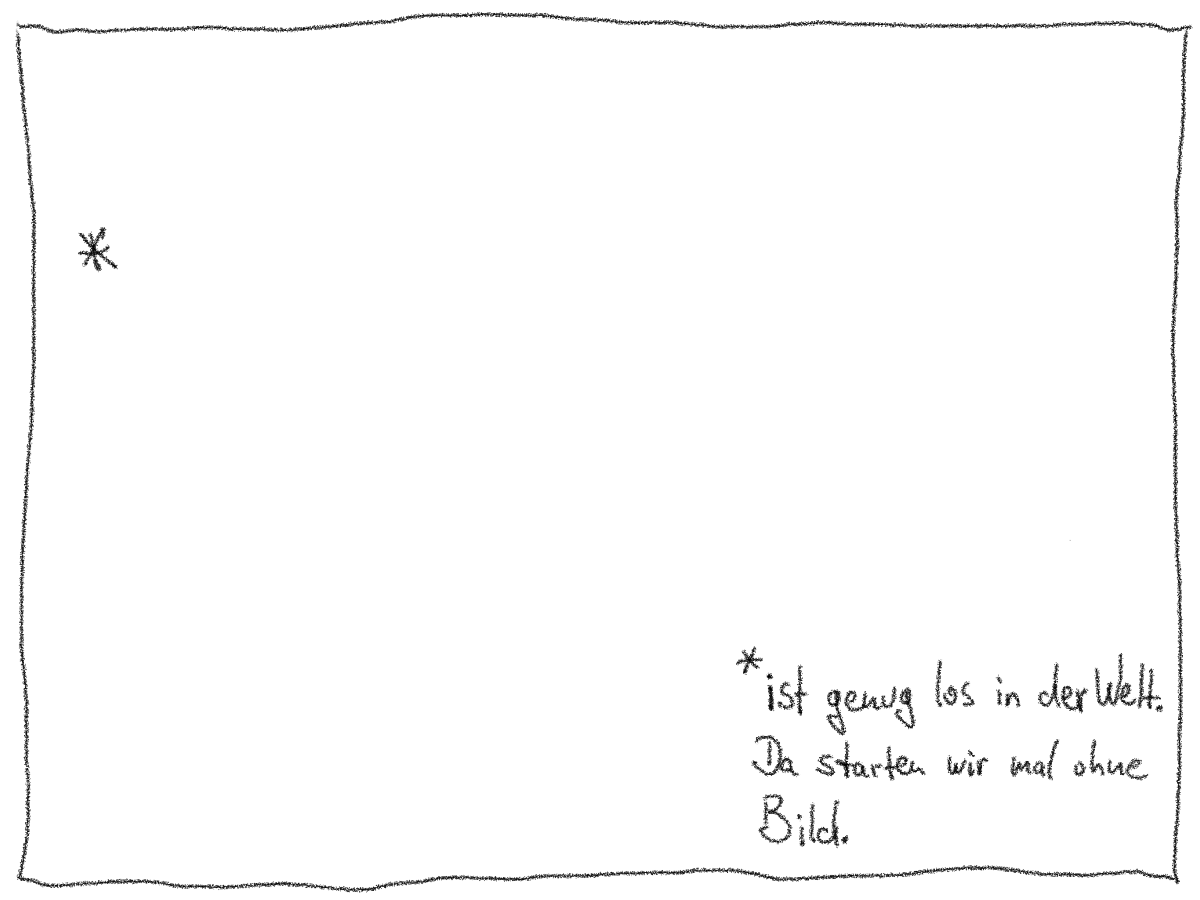 *
*ist genug los in der Welt.
Da starten wir mal ohne
Bild.